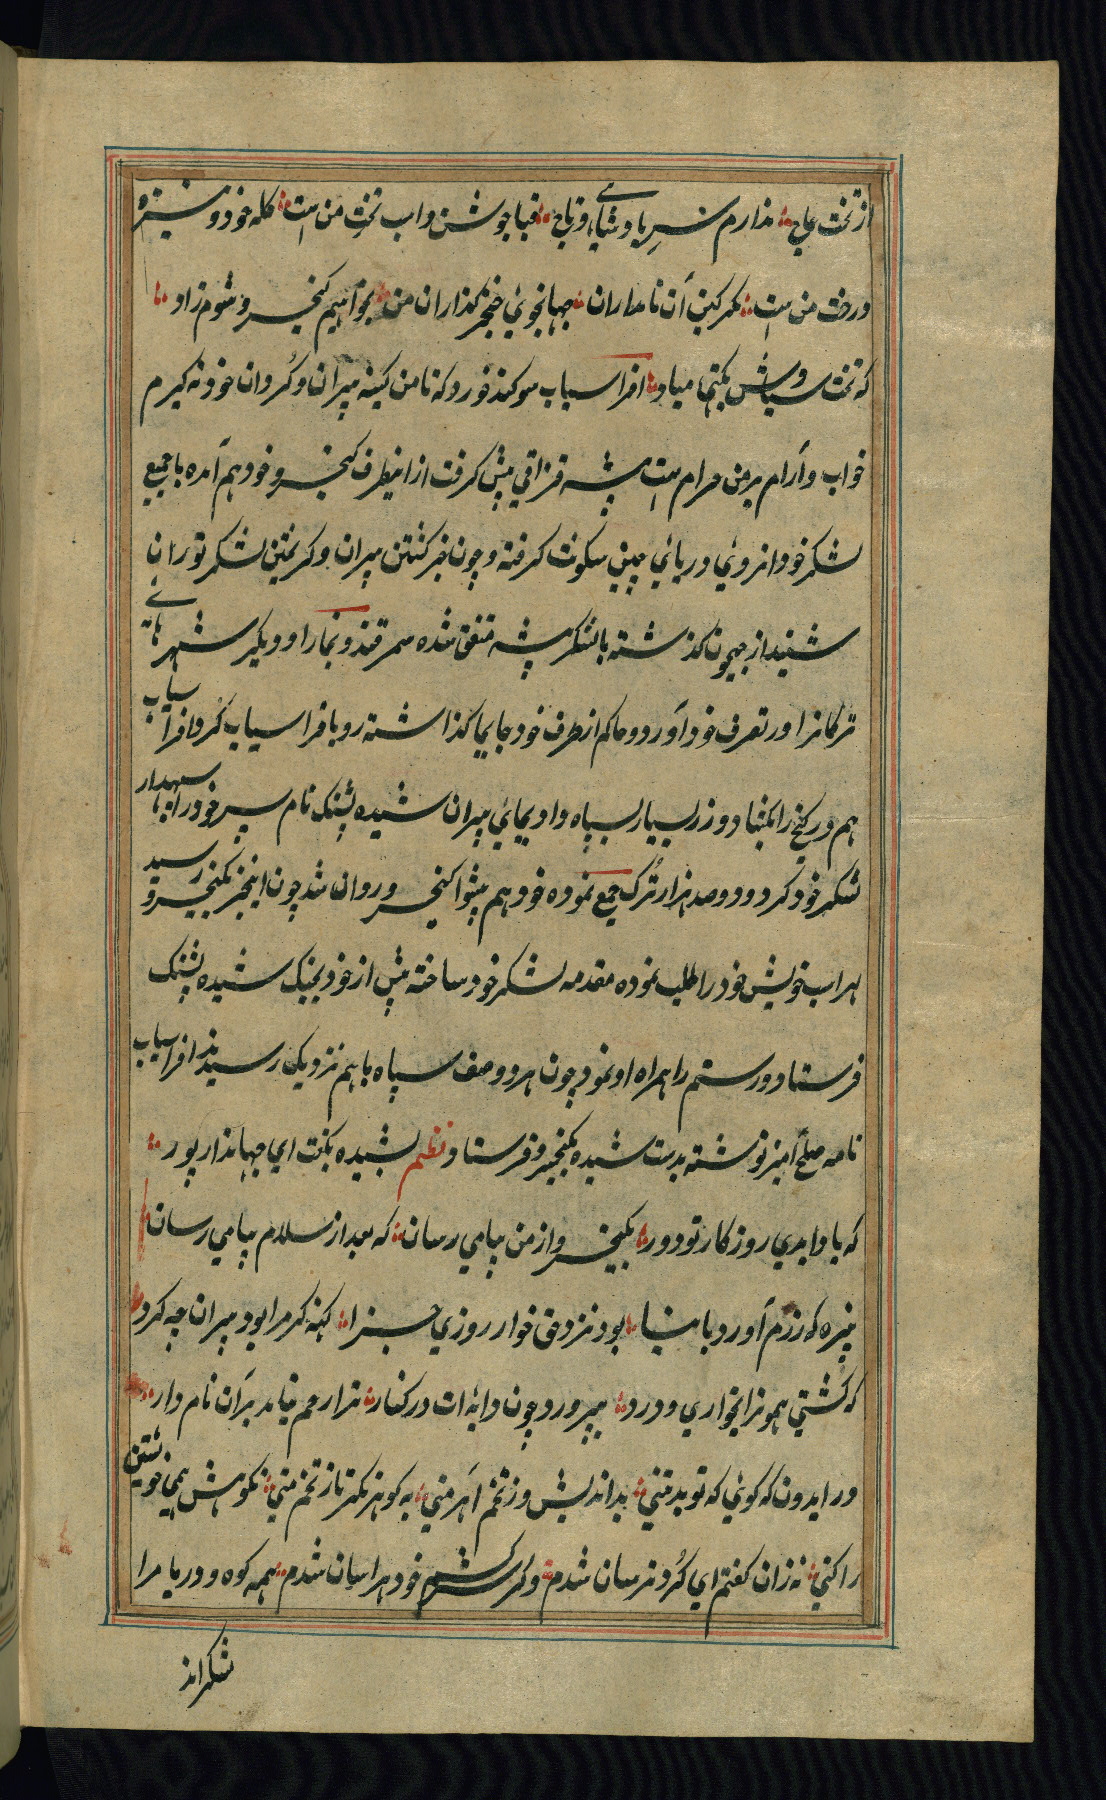 از تخت عاج ؞ ندارم سر پادشاهی و تاج ؞ قبا جوشن و اسب تخت من است ؞ کله خود و نیزه
درخت من است ؞ مگر کین آن نامداران ؞ جهانجوی خنجر گذاران من ؞ بخواهیم کیخسرو شوم زاد ؞
که تخت سیاوش بگیتی مباد ؞ افراسیاب سوکند خورد که تا من کینه پیران و گردان خود نه گیرم
خواب و آرام بر من حرام است پیشه قزاقی پیش گرفت از انیطرف کیخسرو خود هم آمده با جمیع
لشکر خود انروی دریای چین سکونت گرفته و چون خبر کشتن پیران و گریختن لشکر توران
شنید از جیحون گذشته با لشکر پیشه متفق شده سمرقند و بخارا و دیگر شهر هایه
ترکانرا در تصرف خود آورد و حاکم از طرف خود جابجا گذاشته رو با فراسیاب کرد افراسیاب
هم در گنج را بکشاد و زر بسیار بسپاه داد و بجای پیران شیده پشنک نام پسر خود را سپهدار
لشکر خود کرد و دو صد هزار ترک جمع نموده خود هم پیشوا کیخسرو روان شد چون اینخبر بکیخسرو رسید
لهراسب خویش خود را طلب نموده مقدمه لشکر خود ساخته پیش از خود بجنک شیده پشنک
فرستاد و رستم را همراه او نمود چون هر دو صف سپاه باهم نزدیک رسیدند افراسیاب
نامه صلح آمیز نوشته بدست شیده بکیخسرو فرستاد نظم بشیده بگفت ای جهاندار پور ؞
که بادا بدی روزگار تو دور ؞ بکیخسرو از من پیامی رسان ؞ که بعد از سلام پیامی رسان
نبیره که رزم آورد با نیا ؞ بود نزد حق خوار روزی جزا ؞ گنه گر مرا بود پیران چه کرد ؞
که کشتی همونرا بخواری و درد ؞ بپرورد چون دایه ات در کنار ؞ ترا رحم نامد بر آن نام دار ؞
ور ایدون که گوئی که تو بد تنی ؞ بد اندیش وز تخم آهرمنی ؞ به گوهر نگر تا ز تخم منی ؞ نکوهش همی خویشتن
را کنی ؞ نه زان گفتم ای گرد ترسان شدم ؞ و گر لشکر خود هراسان شدم ؞ همه کوه و دریا مرا
لشکراند